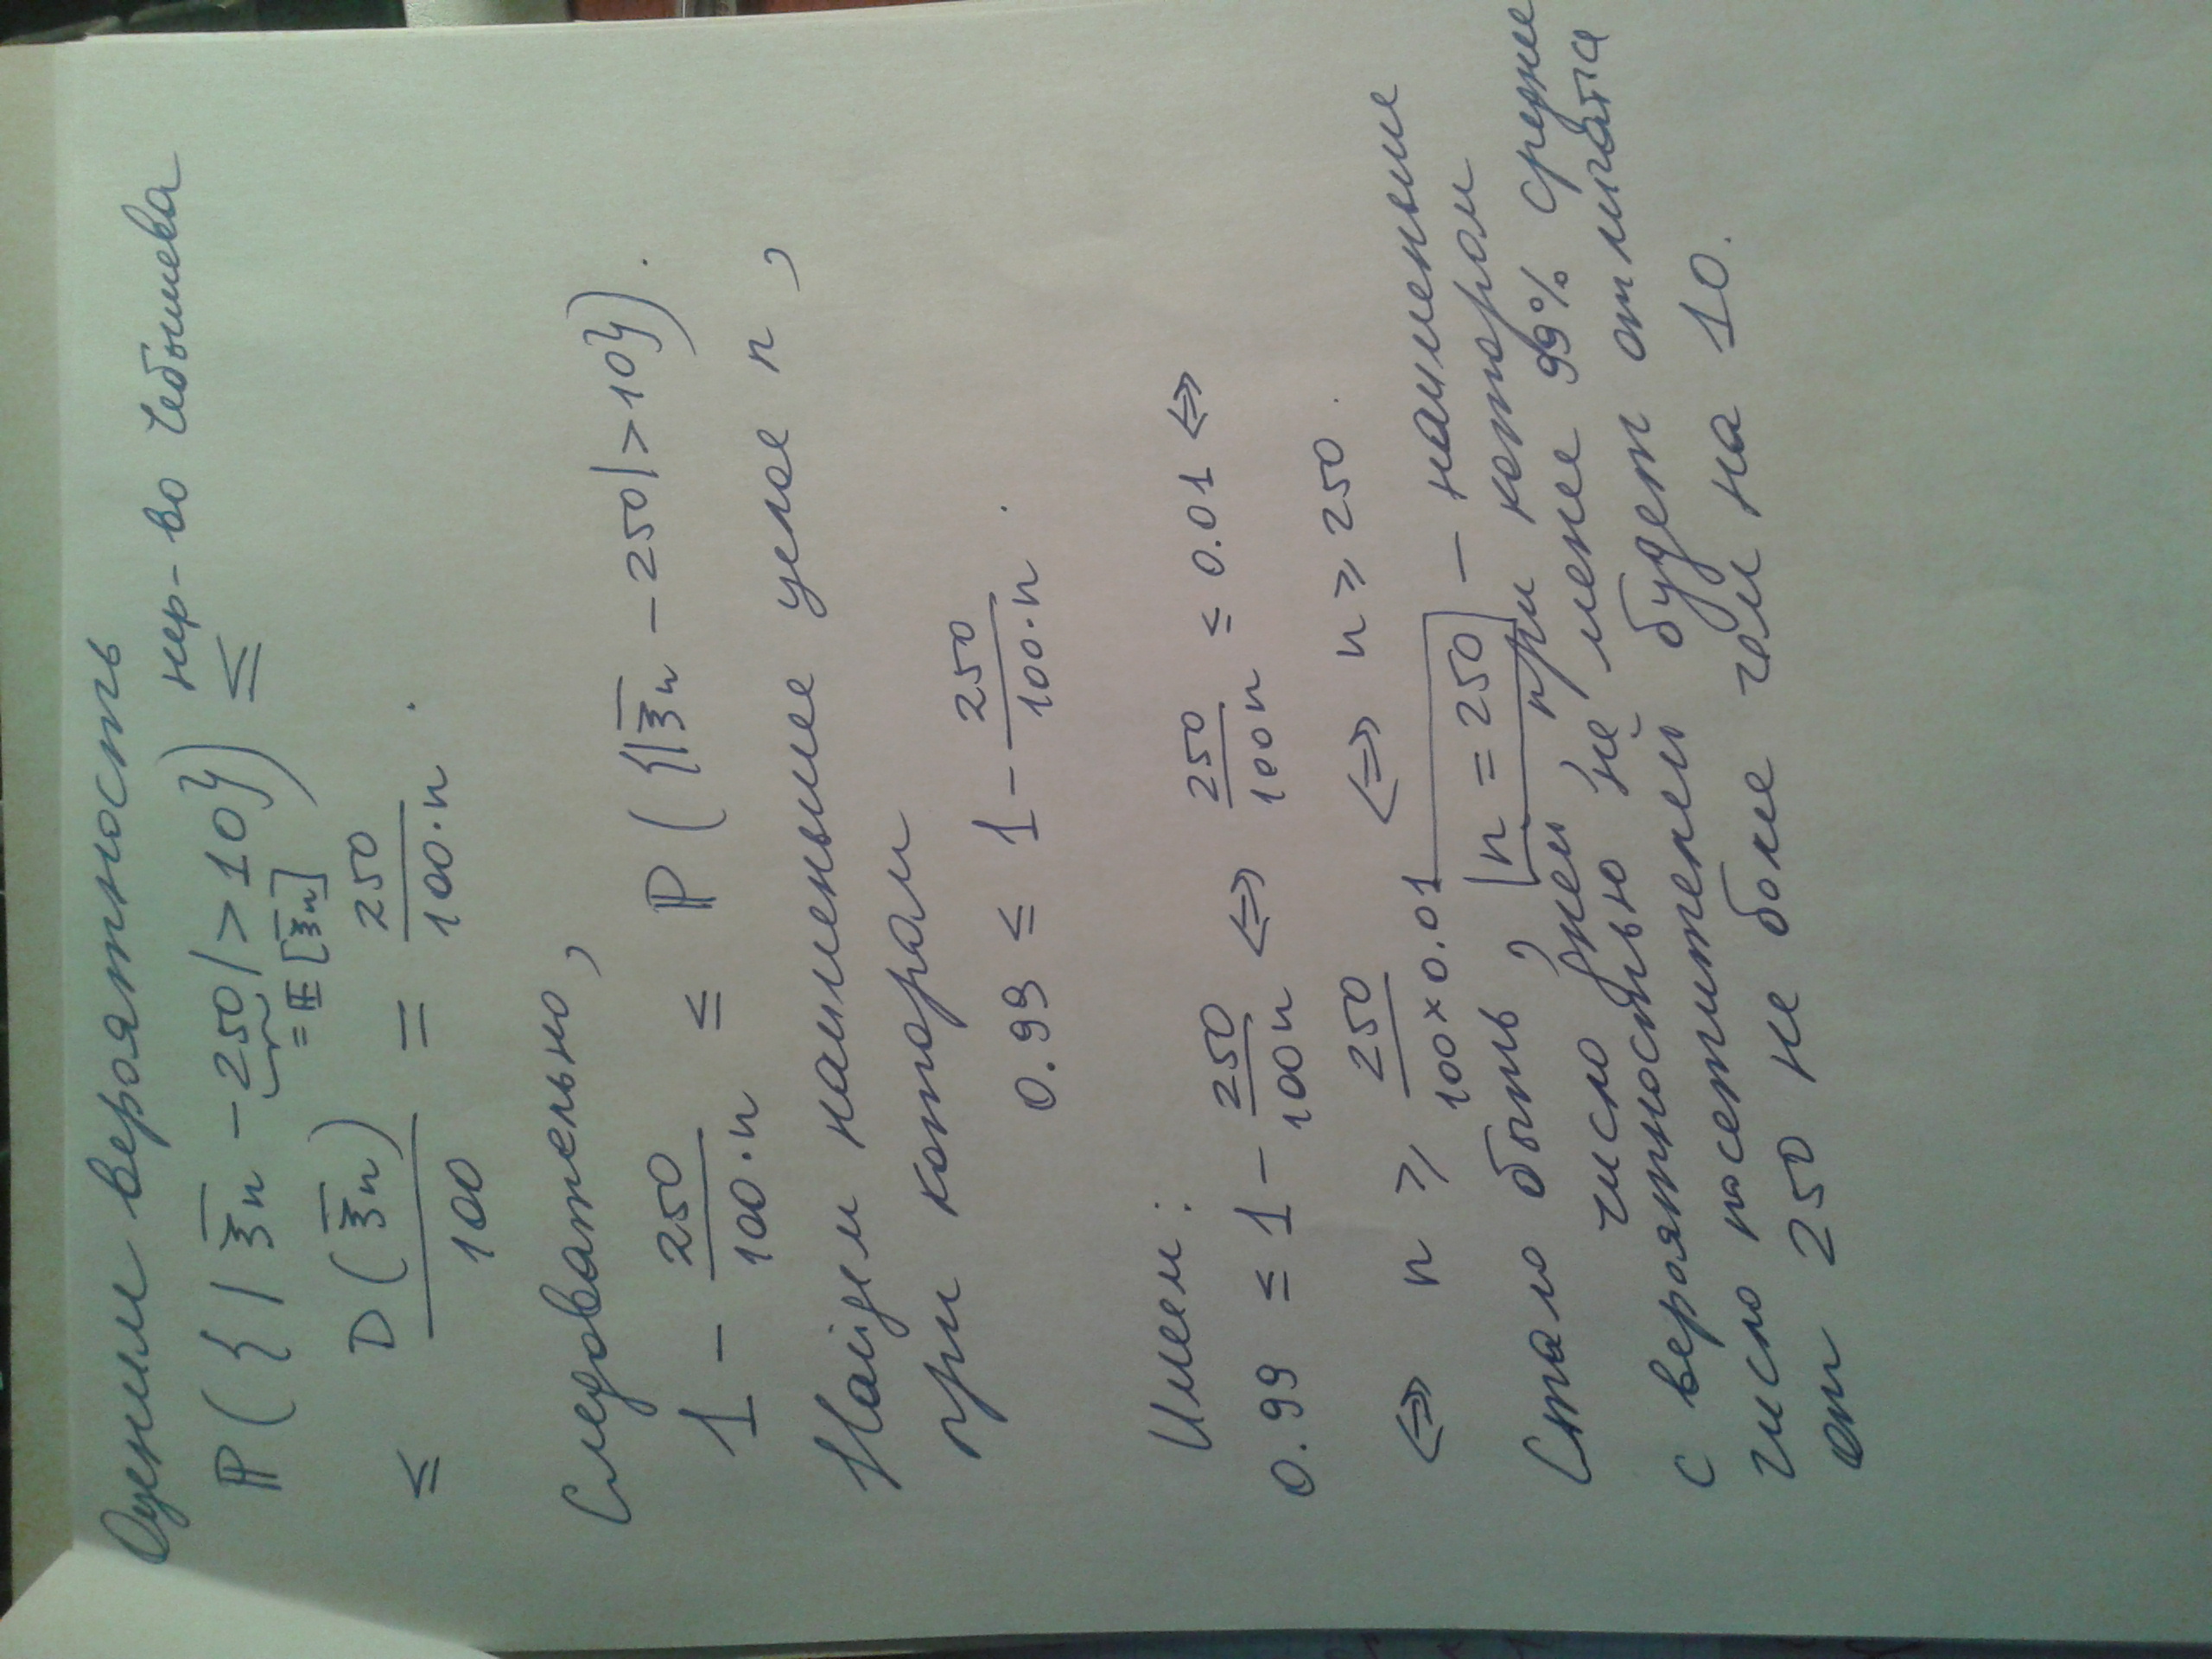 Оценим вероятность
P({|ξ̄n - 250|>10}) ≤ нер-во Чебышева
= E[ξ̄n]
≤ D(ξ̄n)/100 = 250/100·n .
Следовательно,
1 - 250/100·n ≤ P({|ξ̄n - 250|>10}).
Найдем наименьшее целое n,
при котором
0.99 ≤ 1 - 250/100·n .
Имеем:
0.99 ≤ 1 - 250/100n ⇔ 250/100n ≤ 0.01 ⇔
⇔ n ≥ 250/100×0.01 ⇔ n ≥ 250 .
Стало быть, n = 250 - наименьшее
число дней, при котором
с вероятностью не менее 99% среднее
число посетителей будет отличаться
от 250 не более чем на 10.